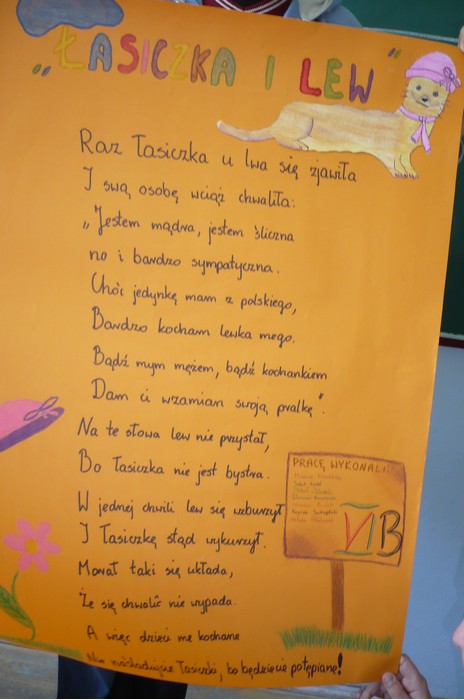 „ŁASICZKA I LEW”
Raz Łasiczka u lwa się zjawiła
I swą osobę wciąż chwaliła:
„Jestem mądra, jestem śliczna
no i bardzo sympatyczna.
Chóć jedynkę mam z polskiego,
Bardzo kocham lewka mego.
Bądź mym mężem, bądź kochankiem
Dam ci wzamian swoją pralkę”.
Na te słowa lew nie przystał,
Bo Łasiczka nie jest bystra.
W jednej chwili lew się wzburzył
I Łasiczkę stąd wykurzył.
Morał taki się układa,
Że się chwalić nie wypada.
A więc dzieci me kochane
Nie naśladujcie Łasiczki, bo będziecie potępiane!
PRACĘ WYKONALI:
VI B